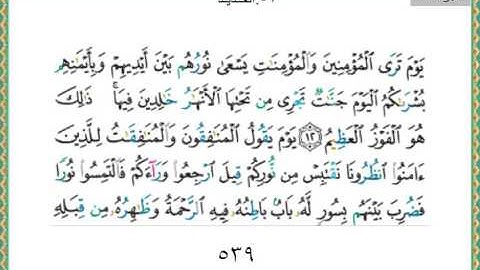 يَوْمَ تَرَى ٱلْمُؤْمِنِينَ وَٱلْمُؤْمِنَٰتِ يَسْعَىٰ نُورُهُم بَيْنَ أَيْدِيهِمْ وَبِأَيْمَٰنِهِم
بُشْرَىٰكُمُ ٱلْيَوْمَ جَنَّٰتٌ تَجْرِى مِن تَحْتِهَا ٱلْأَنْهَٰرُ خَٰلِدِينَ فِيهَا ۚ ذَٰلِكَ
هُوَ ٱلْفَوْزُ ٱلْعَظِيمُ ١٢ يَوْمَ يَقُولُ ٱلْمُنَٰفِقُونَ وَٱلْمُنَٰفِقَٰتُ لِلَّذِينَ
ءَامَنُوا۟ ٱنظُرُونَا نَقْتَبِسْ مِن نُّورِكُمْ قِيلَ ٱرْجِعُوا۟ وَرَآءَكُمْ فَٱلْتَمِسُوا۟ نُورًا
فَضُرِبَ بَيْنَهُم بِسُورٍ لَّهُۥ بَابٌۢ بَاطِنُهُۥ فِيهِ ٱلرَّحْمَةُ وَظَٰهِرُهُۥ مِن قِبَلِهِ
٥٣٩